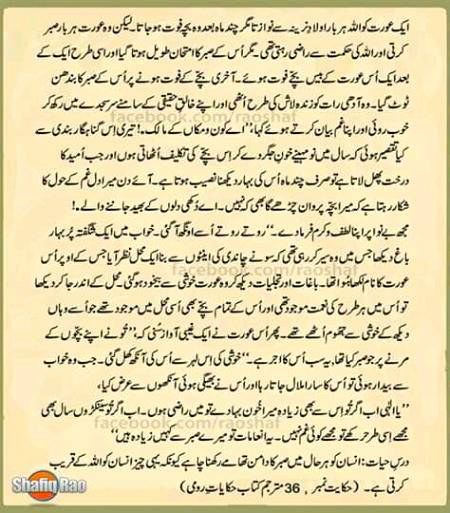 ایک عورت کو اللہ ہر بار اولادِ نرینہ سے نوازتا مگر چند ماہ بعد وہ بچہ فوت ہو جاتا۔ لیکن وہ عورت ہر بار صبر
کرتی اور اللہ کی حکمت سے راضی رہتی تھی۔ مگر اُس کے صبر کا امتحان طویل ہوتا گیا اور اسی طرح ایک کے
بعد ایک اُس عورت کے بیس بچے فوت ہوئے۔ آخری بچے کے فوت ہونے پر اُس کے صبر کا بندھن
ٹوٹ گیا۔ وہ آدھی رات کو زندہ لاش کی طرح اُٹھی اور اپنے خالقِ حقیقی کے سامنے سر سجدے میں رکھ کر
خوب روئی اور اپنا غم بیان کرتے ہوئے کہا، "اے کون و مکاں کے مالک۔! تیری اِس گناہگار بندی سے
کیا تقصیر ہوئی کہ سال میں نو مہینے خونِ جگر دے کر اِس بچے کی تکلیف اُٹھاتی ہوں اور جب اُمید کا
درخت پھل لاتا ہے تو صرف چند ماہ اُس کی بہار دیکھنا نصیب ہوتا ہے۔ آئے دن میرا دل غم کے حول کا
شکار رہتا ہے کہ میرا بچہ پروان چڑھے گا بھی کہ نہیں۔ اے دُکھی دلوں کے بھید جاننے والے۔!
مجھ بے نوا پر اپنا لطف و کرم فرما دے۔" روتے روتے اُسے اونگھ آ گئی۔ خواب میں ایک شگفتہ پُر بہار
باغ دیکھا جس میں وہ سیر کر رہی تھی کہ سونے چاندی کی اینٹوں سے بنا ایک محل نظر آیا جس کے اوپر اُس
عورت کا نام لکھا ہوا تھا۔ باغات اور تجلیات دیکھ کر وہ عورت خوشی سے بیخود ہو گئی۔ محل کے اندر جا کر دیکھا
تو اُس میں ہر طرح کی نعمت موجود تھی اور اُس کے تمام بچے بھی اُسی محل میں موجود تھے جو اُسے وہاں
دیکھ کے خوشی سے جھوم اُٹھے تھے۔ پھر اُس عورت نے ایک غیبی آواز سُنی کہ، "تُو نے اپنے بچوں کے
مرنے پر جو صبر کیا تھا، یہ سب اُس کا اجر ہے۔" خوشی کی اِس لہر سے اُس کی آنکھ کھل گئی۔ جب وہ خواب
سے بیدار ہوئی تو اُس کا سارا ملال جاتا رہا اور اُس نے بھیگی ہوئی آنکھوں سے عرض کیا،
"یا الٰہی اب اگر تُو اِس سے بھی زیادہ میرا خُون بہا دے تو میں راضی ہوں۔ اب اگر تُو سینکڑوں سال بھی
مجھے اِسی طرح رکھے تو مجھے کوئی غم نہیں۔ یہ انعامات تو میرے صبر سے کہیں زیادہ ہیں"
درسِ حیات: انسان کو ہر حال میں صبر کا دامن تھامے رکھنا چاہیے کیونکہ یہی چیز انسان کو اللہ کے قریب
کرتی ہے۔ (حکایت نمبر 36، مترجم کتاب حکایاتِ رومی)
facebook.com/raoshaf
facebook.com/raoshaf
facebook.com/raoshaf
Shafiq Rao